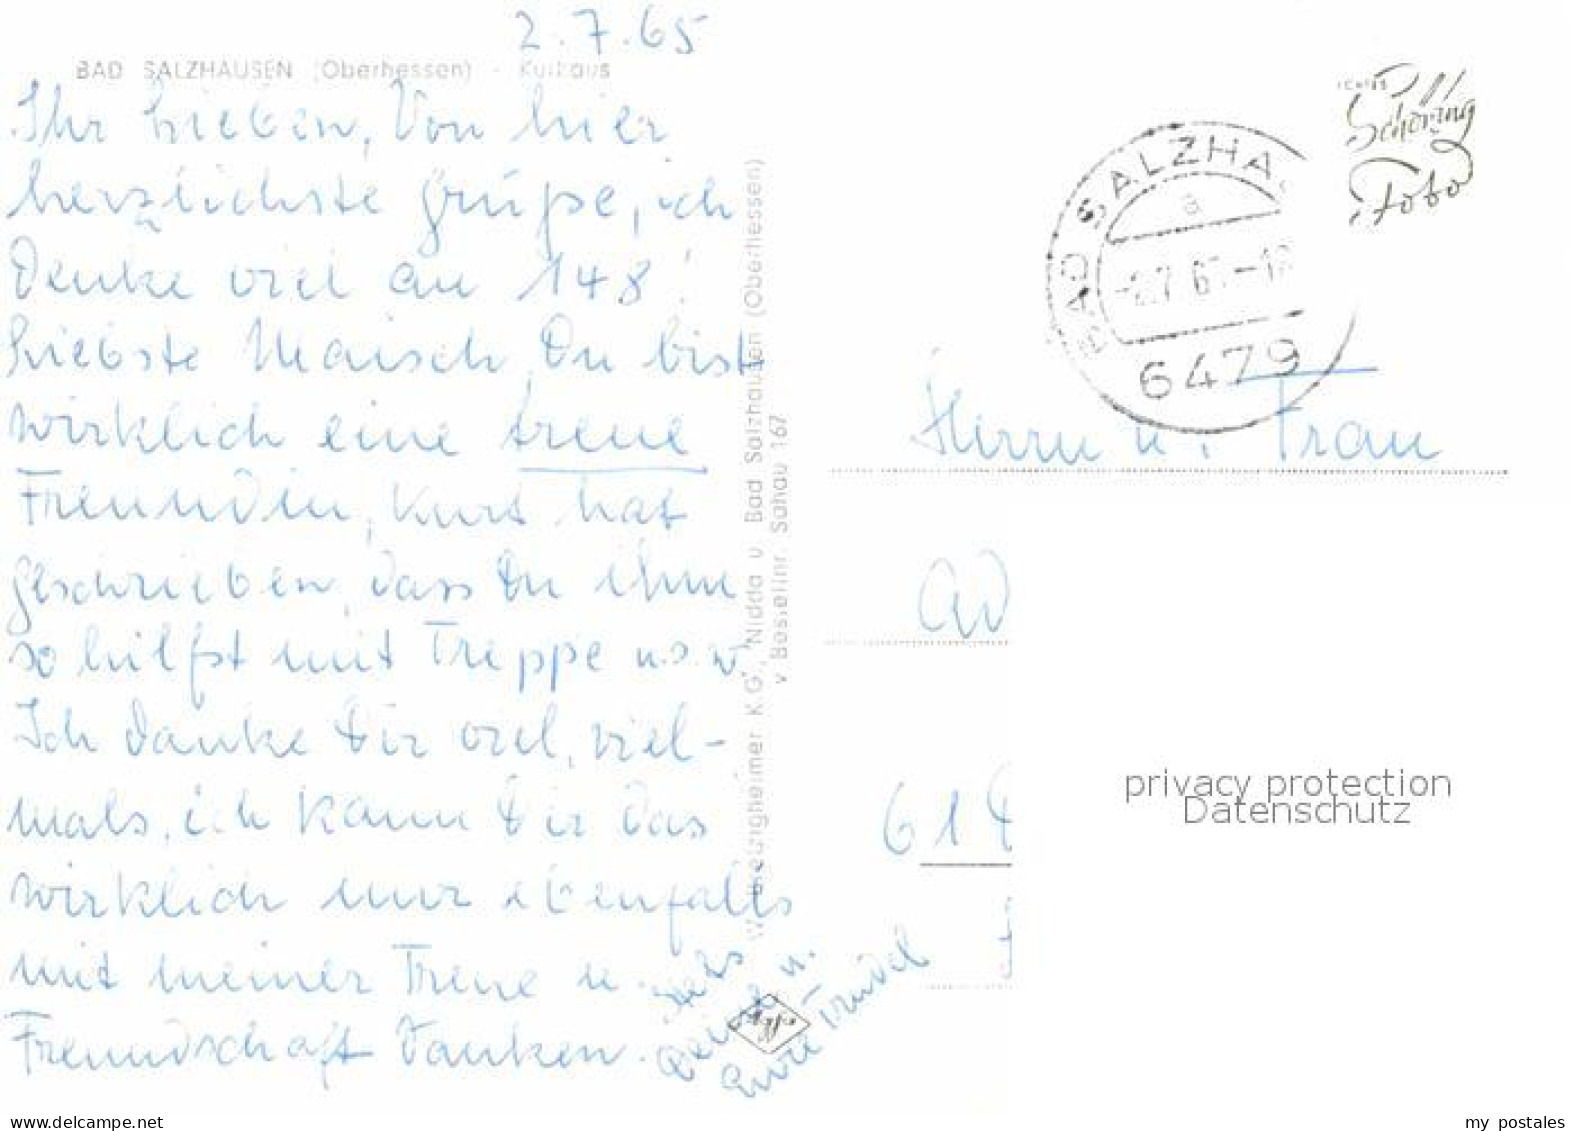 2.7.65
BAD SALZHAUSEN (Oberhessen) - Kurhaus
Ihr Lieben, Von hier
herzlichste Grüße, ich
Denke viel an 148!
Liebste Maisch, Du bist
wirklich eine treue
Freundin, Kurt hat
geschrieben, dass Du ihm
so hilfst mit Treppe u.s.w.
Ich danke Dir viel, viel-
mals, ich kann Dir das
wirklich nur ebenfalls
mit meiner Treue u.
Freundschaft danken.
Stets
Deine u.
Eure Trudel
Nidda u. Bad Salzhausen (Oberhessen)
v Bestellnr. Sahau 167
Schöning
Foto
BAD SALZHA
a
-2.7.65-18
6479
Herrn u. Frau
61
privacy protection
Datenschutz
delcampe.net
my postales